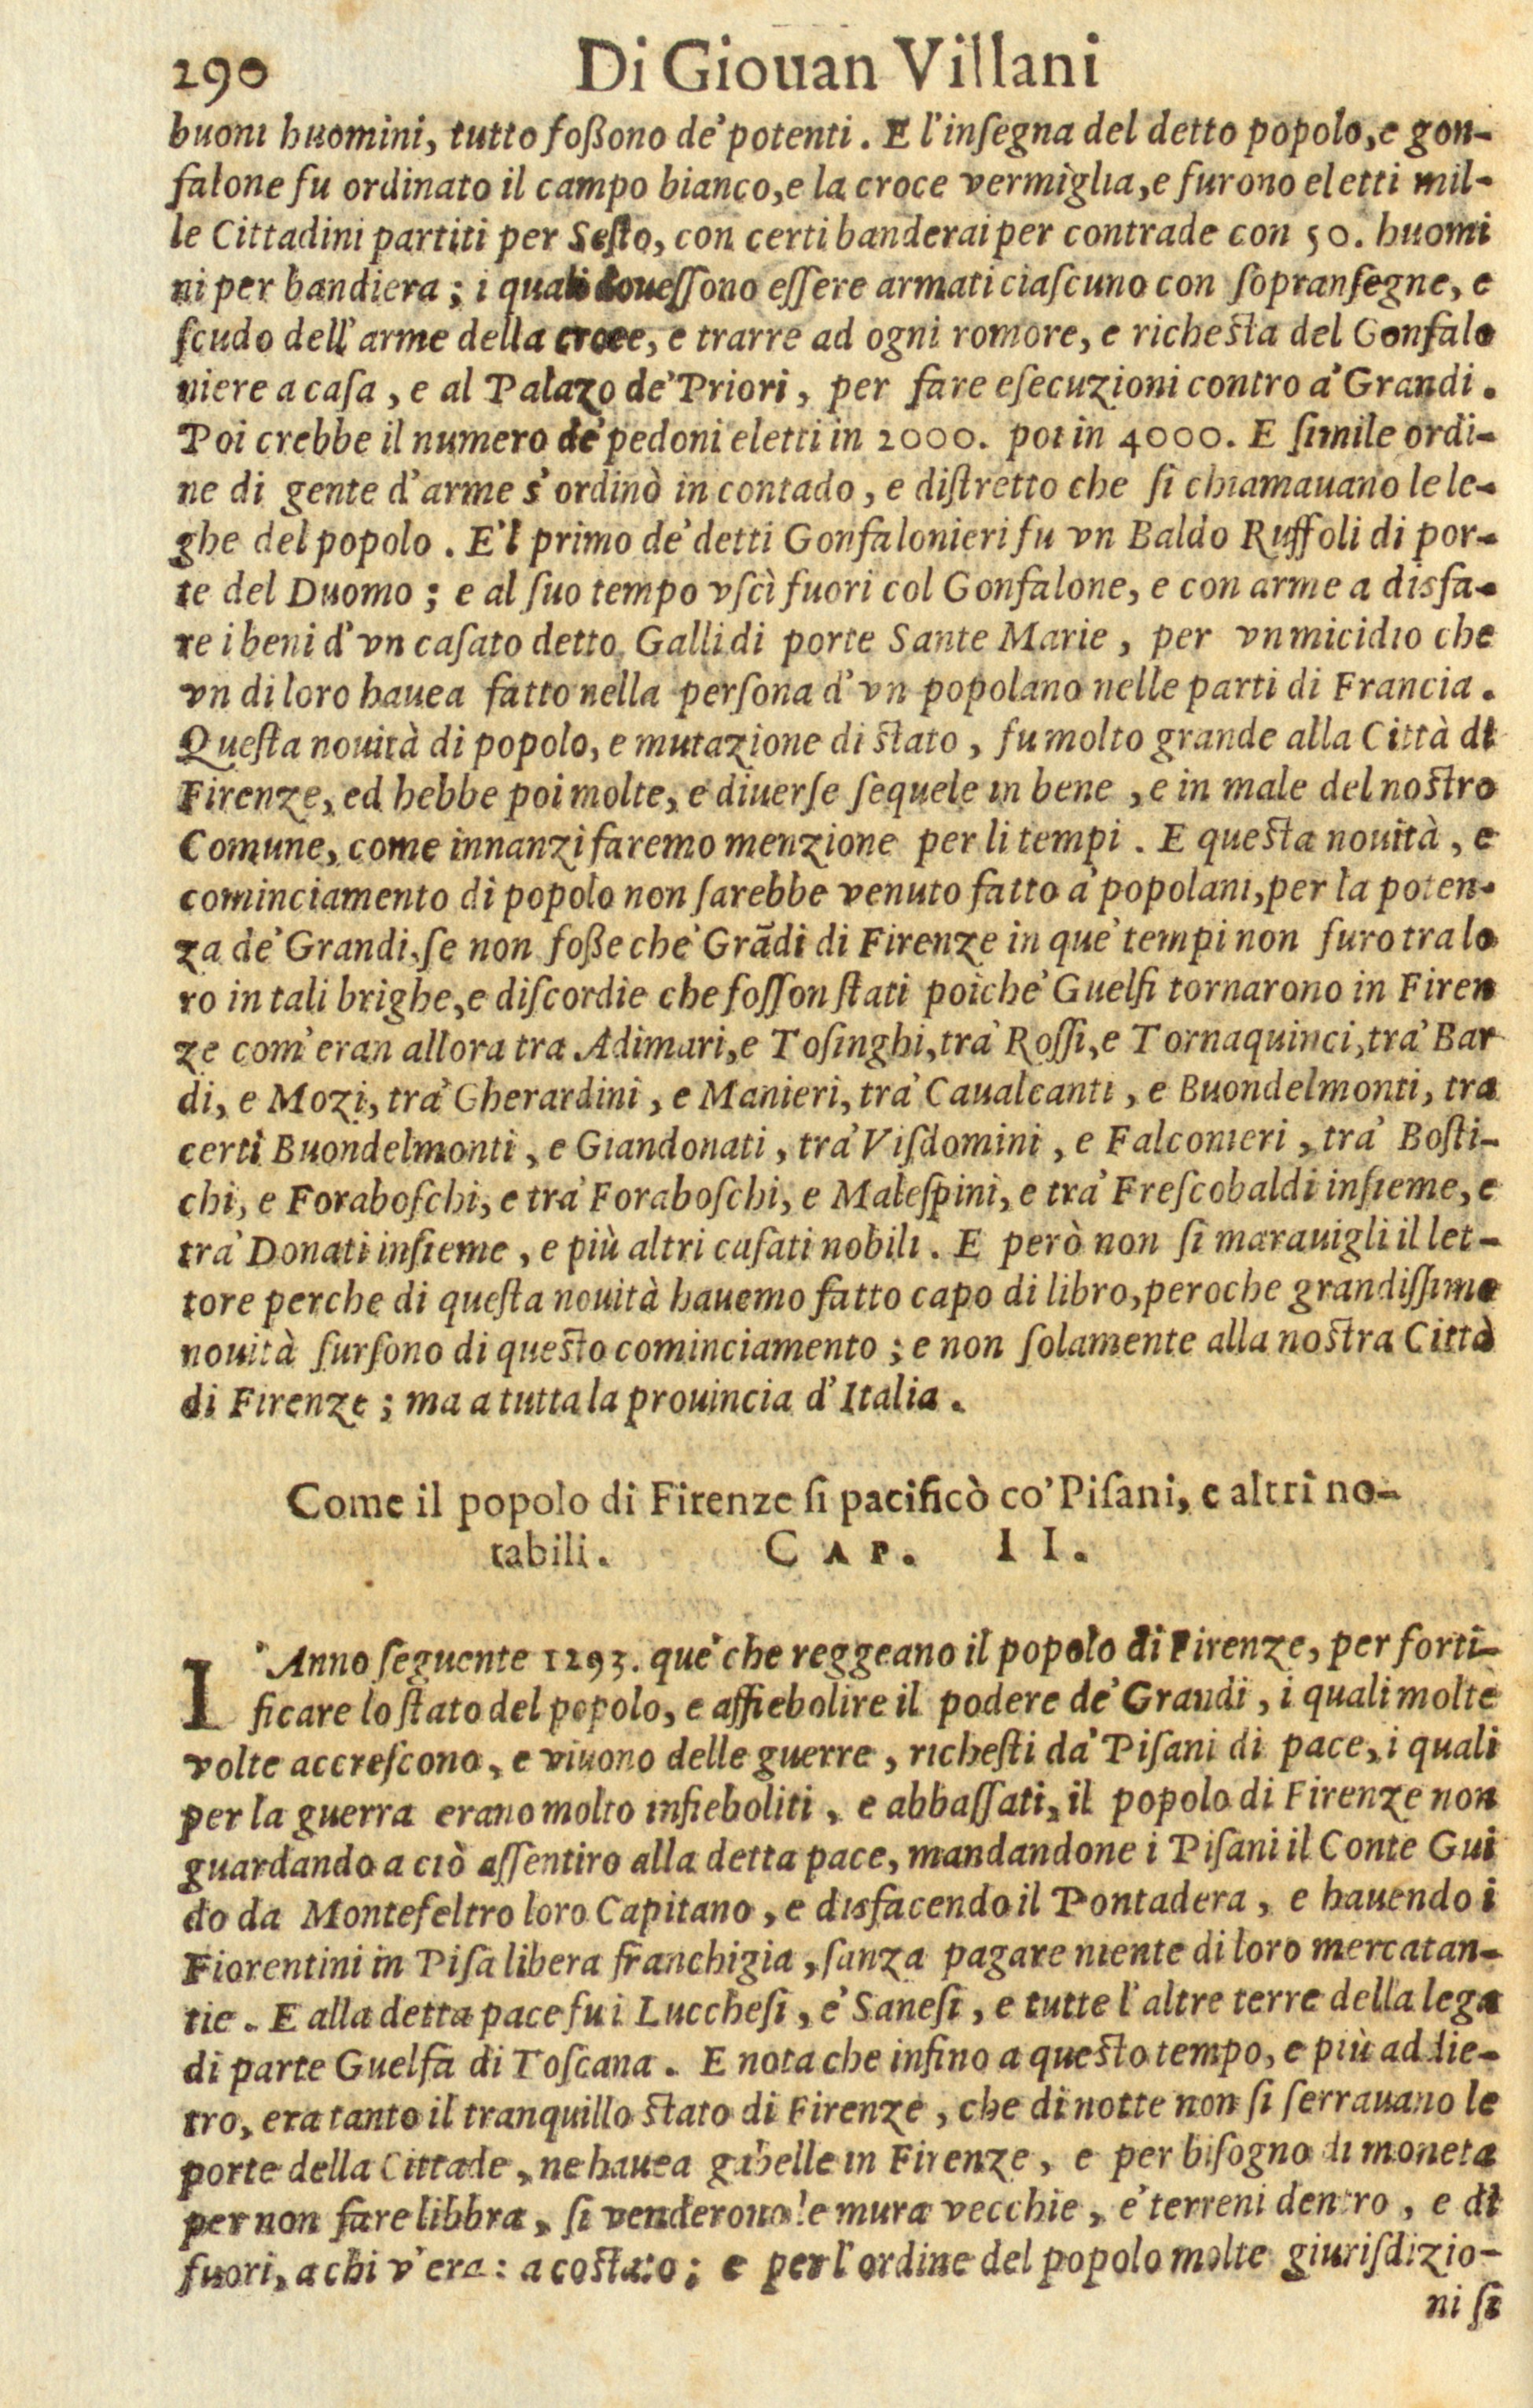 290 Di Giouan Villani
buoni huomini, tutto foßono de' potenti. E l'inſegna del detto popolo, e gon-
falone fu ordinato il campo bianco, e la croce vermiglia, e furono eletti mil-
le Cittadini partiti per Seſto, con certi banderai per contrade con 50. huomi
ni per bandiera; i quali doueſſono eſſere armati ciaſcuno con ſopranſegne, e
ſcudo dell'arme della croce, e trarre ad ogni romore, e richeſta del Gonfalo
niere a caſa, e al Palazo de' Priori, per fare eſecuzioni contro a' Grandi.
Poi crebbe il numero de' pedoni eletti in 2000. poi in 4000. E ſimile ordi-
ne di gente d'arme s'ordinò in contado, e diſtretto che ſi chiamauano le le-
ghe del popolo. E'l primo de' detti Gonfalonieri fu vn Baldo Ruffoli di por-
te del Duomo; e al ſuo tempo vſcì fuori col Gonfalone, e con arme a disfa-
re i beni d'vn caſato detto Galli di porte Sante Marie, per vn micidio che
vn di loro hauea fatto nella perſona d'vn popolano nelle parti di Francia.
Queſta nouità di popolo, e mutazione di ſtato, fu molto grande alla Città di
Firenze, ed hebbe poi molte, e diuerſe ſequele in bene, e in male del noſtro
Comune, come innanzi faremo menzione per li tempi. E queſta nouità, e
cominciamento di popolo non ſarebbe venuto fatto a' popolani, per la poten-
za de' Grandi, ſe non foße che' Grādi di Firenze in que' tempi non furo tra lo
ro in tali brighe, e diſcordie che foſſon ſtati poiche' Guelfi tornarono in Firen
ze com'eran allora tra Adimari, e Toſinghi, tra' Roſſi, e Tornaquinci, tra' Bar
di, e Mozi, tra' Gherardini, e Manieri, tra' Caualcanti, e Buondelmonti, tra
certi Buondelmonti, e Giandonati, tra' Viſdomini, e Falconieri, tra' Boſti-
chi, e Foraboſchi, e tra' Foraboſchi, e Maleſpini, e tra' Freſcobaldi inſieme, e
tra' Donati inſieme, e più altri caſati nobili. E però non ſi marauigli il let-
tore perche di queſta nouità hauemo fatto capo di libro, peroche grandiſſime
nouità furſono di queſto cominciamento; e non ſolamente alla noſtra Città
di Firenze; ma a tutta la prouincia d'Italia.
Come il popolo di Firenze ſi pacificò co' Piſani, e altri no-
tabili. CAP. II.
L'Anno ſeguente 1293. que' che reggeano il popolo di Firenze, per forti-
ficare lo ſtato del popolo, e affiebolire il podere de' Grandi, i quali molte
volte accreſcono, e viuono delle guerre, richeſti da' Piſani di pace, i quali
per la guerra erano molto infieboliti, e abbaſſati, il popolo di Firenze non
guardando a ciò aſſentiro alla detta pace, mandandone i Piſani il Conte Gui
do da Montefeltro loro Capitano, e disfacendo il Pontadera, e hauendo i
Fiorentini in Piſa libera franchigia, ſanza pagare niente di loro mercatan-
tie. E alla detta pace fu i Luccheſi, e' Saneſi, e tutte l'altre terre della lega
di parte Guelfa di Toſcana. E nota che infino a queſto tempo, e più addie-
tro, era tanto il tranquillo ſtato di Firenze, che di notte non ſi ſerrauano le
porte della Cittade, ne hauea gabelle in Firenze, e per biſogno di moneta
per non fare libbra, ſi venderono le mura vecchie, e' terreni dentro, e di
fuori, a chi v'era: acoſtato; e per l'ordine del popolo molte giuriſdizio-
ni ſi